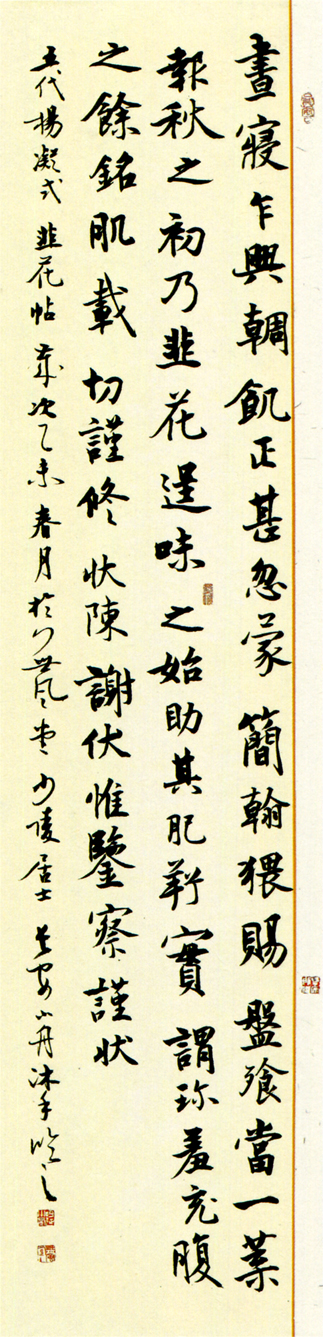 晝寢乍興輖飢正甚忽蒙簡翰猥賜盤飧當一葉
報秋之初乃韭花逞味之始助其肥羜實謂珍羞充腹
之餘銘肌載切謹修狀陳謝伏惟鑒察謹狀
五代楊凝式韭花帖歲次乙未春月於風堂少陵居士長安沐手臨之